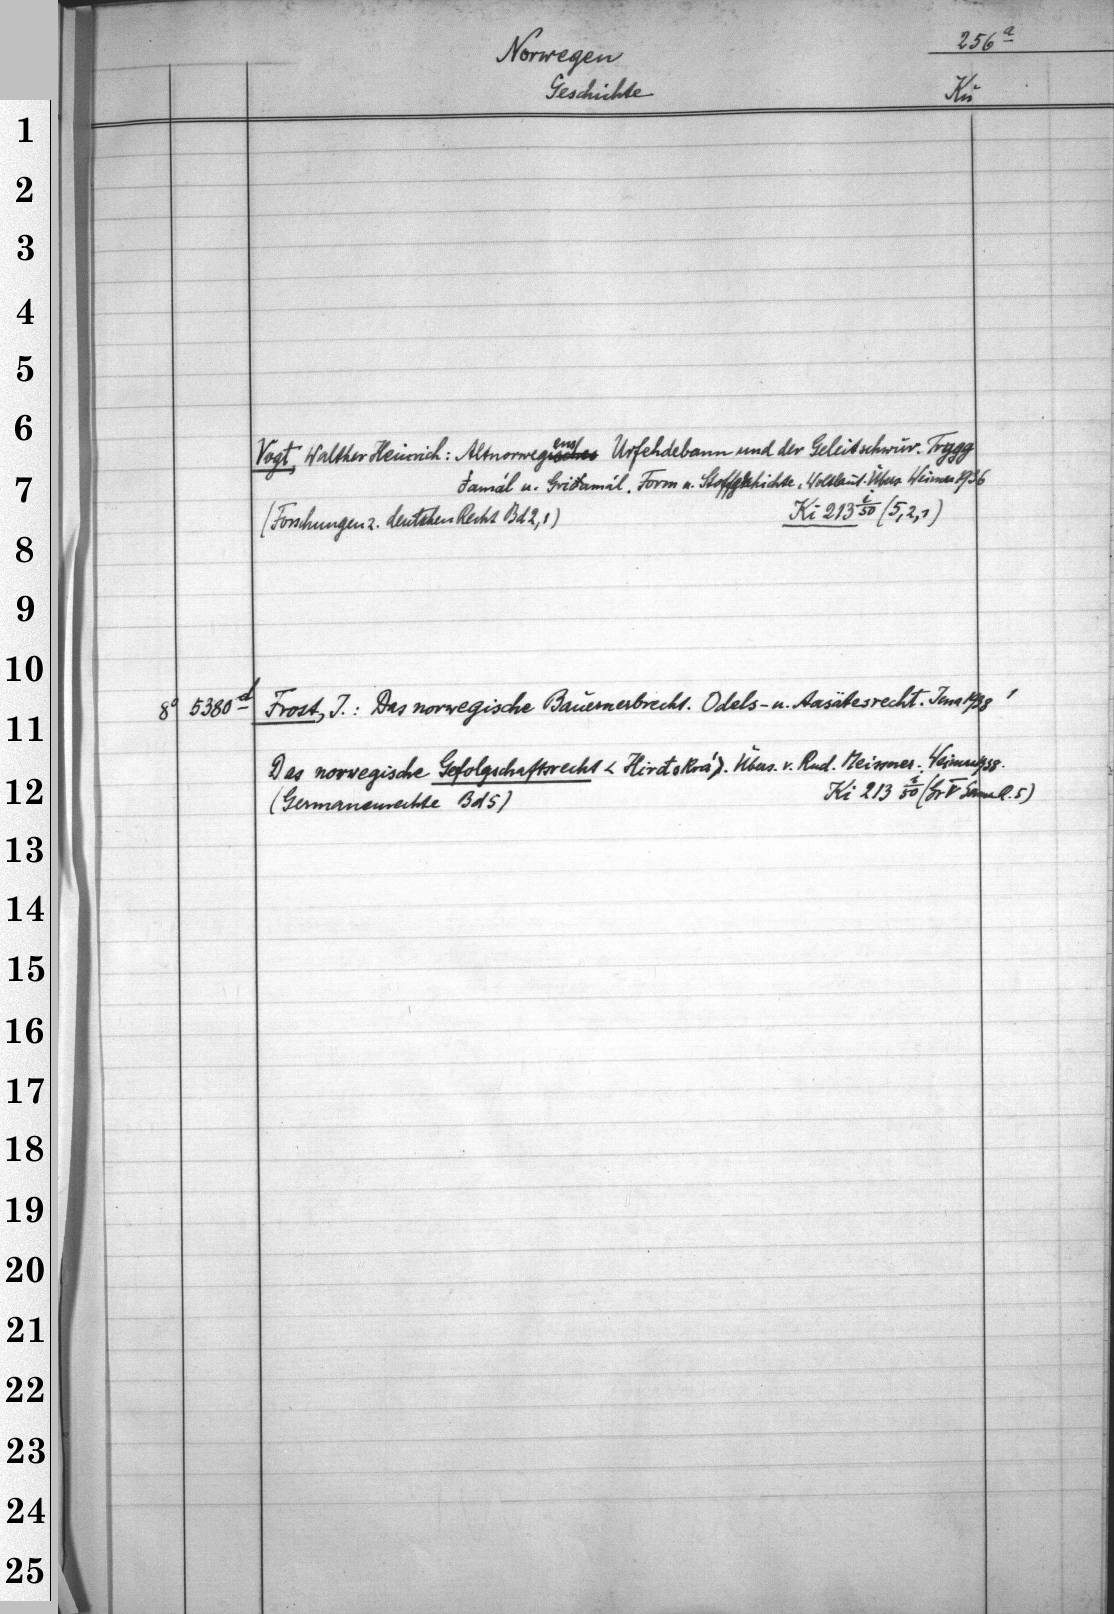 256 a
Norwegen
Geschichte
Kü
1
2
3
4
5
6
Vogt, Walther Heinrich: Altnorwegens Urfehdebann und der Geleitschwur. Trygg
7
đamál u. Griđamál. Form u. Stoffgeschichte, Wortlaut. Übers. Weimar 1936
(Forschungen z. deutschen Recht Bd 2,1) Ki 213 i/50 (5,2,1)
8
9
10
8° 5380 d Frost, J.: Das norwegische Bauernerbrecht. Odels- u. Aasätesrecht. Jena 1938
11
Das norwegische Gefolgschaftsrecht < Hirđskrá >. Übers. v. Rud. Meissner. Weimar 1938.
12
(Germanenrechte Bd 5) Ki 213 i/50
13
14
15
16
17
18
19
20
21
22
23
24
25